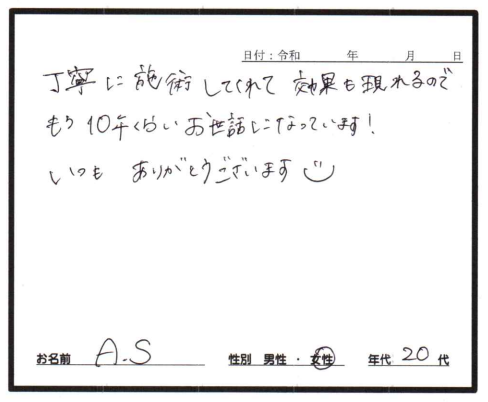 日付：令和　　年　　月　　日
丁寧に施術してくれて 効果も現れるので
もう10年くらいお世話になっています!
いつも ありがとうございます
お名前 A.S 性別 男性・女性 年代 20 代